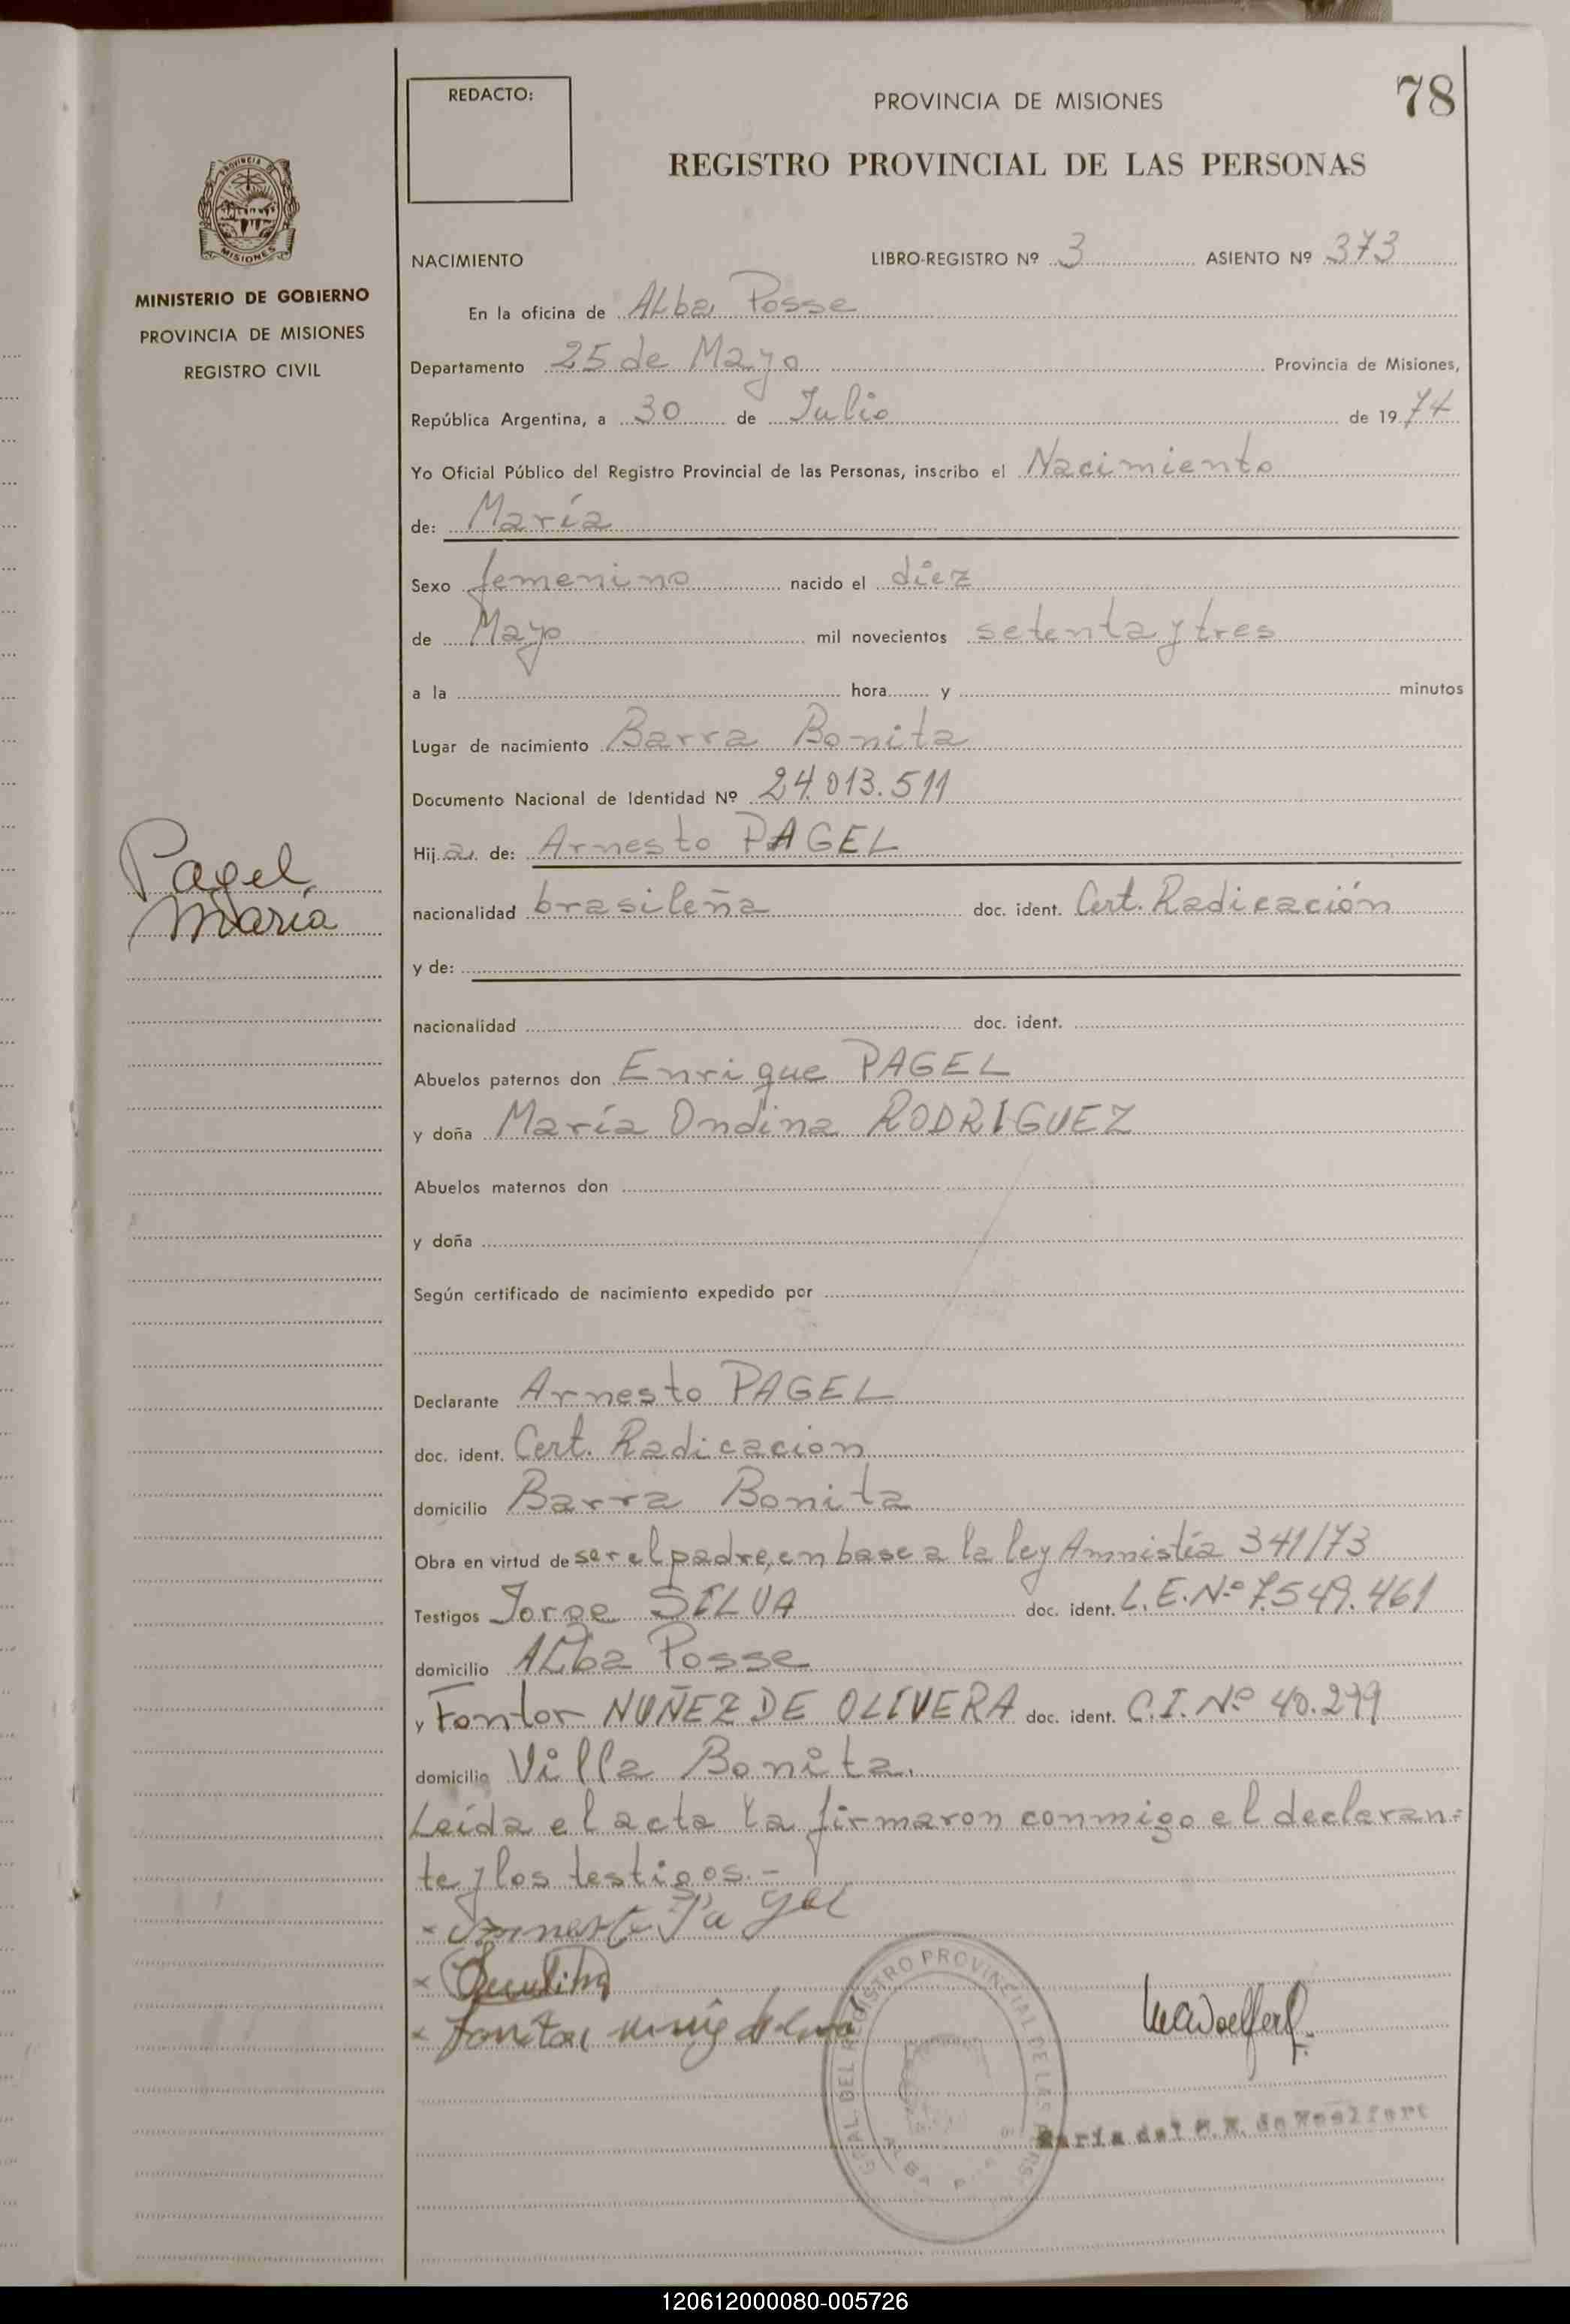 78
REDACTO:
PROVINCIA DE MISIONES
REGISTRO PROVINCIAL DE LAS PERSONAS
PROVINCIA DE
MISIONES
MINISTERIO DE GOBIERNO
PROVINCIA DE MISIONES
REGISTRO CIVIL
Pagel
María
NACIMIENTO LIBRO-REGISTRO Nº 3 ASIENTO Nº 373
En la oficina de Alba Posse
Departamento 25 de Mayo Provincia de Misiones,
República Argentina, a 30 de Julio de 1974
Yo Oficial Público del Registro Provincial de las Personas, inscribo el Nacimiento
de: María
Sexo femenino nacido el diez
de Mayo mil novecientos setenta y tres
a la hora y minutos
Lugar de nacimiento Barra Bonita
Documento Nacional de Identidad Nº 24.013.511
Hija de: Arnesto PAGEL
nacionalidad brasileña doc. ident. Cert. Radicación
y de:
nacionalidad doc. ident.
Abuelos paternos don Enrique PAGEL
y doña María Ondina RODRIGUEZ
Abuelos maternos don
y doña
Según certificado de nacimiento expedido por
Declarante Arnesto PAGEL
doc. ident. Cert. Radicacion
domicilio Barra Bonita
Obra en virtud de ser el padre, en base a la ley Amnistía 341/73
Testigos Jorge SILVA doc. ident. L.E.Nº 7.549.461
domicilio Alba Posse
y Fontor NUÑEZ DE OLIVERA doc. ident. C.I. Nº 40.299
domicilio Villa Bonita.
Leída el acta la firmaron conmigo el declaran=
te y los testigos.-
x Arnesto Pagel
x
x
GRAL. DEL REGISTRO PROVINCIAL DE LAS PERS
María del de Woelfert
120612000080-005726